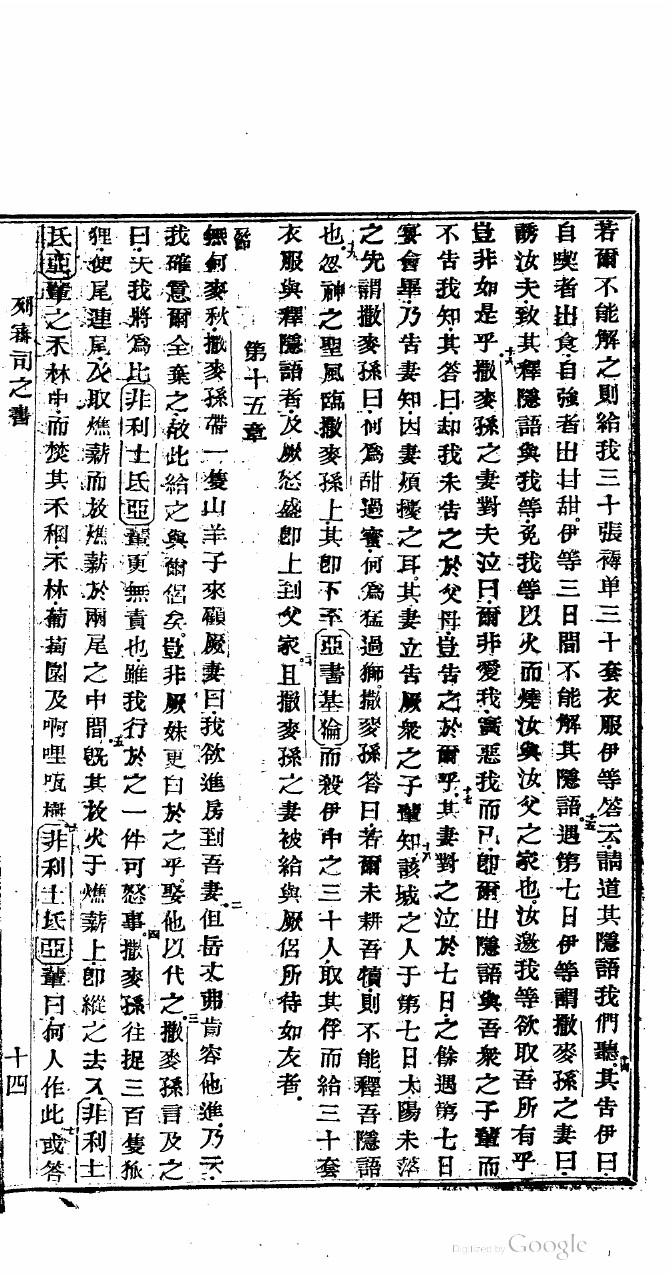 若爾不能解之則給我三十張褥单三十套衣服伊等答云請道其隱語我們聽其告伊曰
十四
自喫者出食自強者出甘甜伊等三日間不能解其隱語
十五
遇第七日伊等謂撒麥孫之妻曰
誘汝夫致其釋隱語與我等免我等以火而燒汝與汝父之家也汝邀我等欲取吾所有乎
豈非如是乎
十六
撒麥孫之妻對夫泣曰爾非愛我寔惡我而已卽爾出隱語與吾衆之子輩而
不告我知其答曰却我未告之於父母豈告之於爾乎
十七
其妻對之泣於七日之餘遇第七日
宴會畢乃告妻知因妻煩擾之耳其妻立告厥衆之子輩知
十八
該城之人于第七日太陽未落
之先謂撒麥孫曰何爲甜過蜜何爲猛過獅撒麥孫答曰若爾未耕吾犢則不能釋吾隱語
也
十九
忽神之聖風臨撒麥孫上其卽下至亞書基倫而殺伊中之三十人取其俘而給三十套
衣服與釋隱語者及厥怒盛卽上到父家
二十
且撒麥孫之妻被給與厥侶所待如友者
第十五章
節
無何麥秋撒麥孫帶一隻山羊子來顧厥妻曰我欲進房到吾妻但岳丈弗肯容他進
二
乃云
我確意爾全棄之故此給之與爾侶矣豈非厥妹更白於之乎娶他以代之
三
撒麥孫言及之
曰夫我將爲比非利士氐亞輩更無責也雖我行於之一件可怒事
四
撒麥孫往捉三百隻狐
狸使尾連尾及取燋薪而放燋薪於兩尾之中間
五
旣其放火于燋薪上卽縱之去入非利士
氐亞輩之禾林中而焚其禾稛禾林葡萄園及啊哩㼈樹
六
非利士氐亞輩曰何人作此或答
七
列審司之書
十四
Digitized by Google